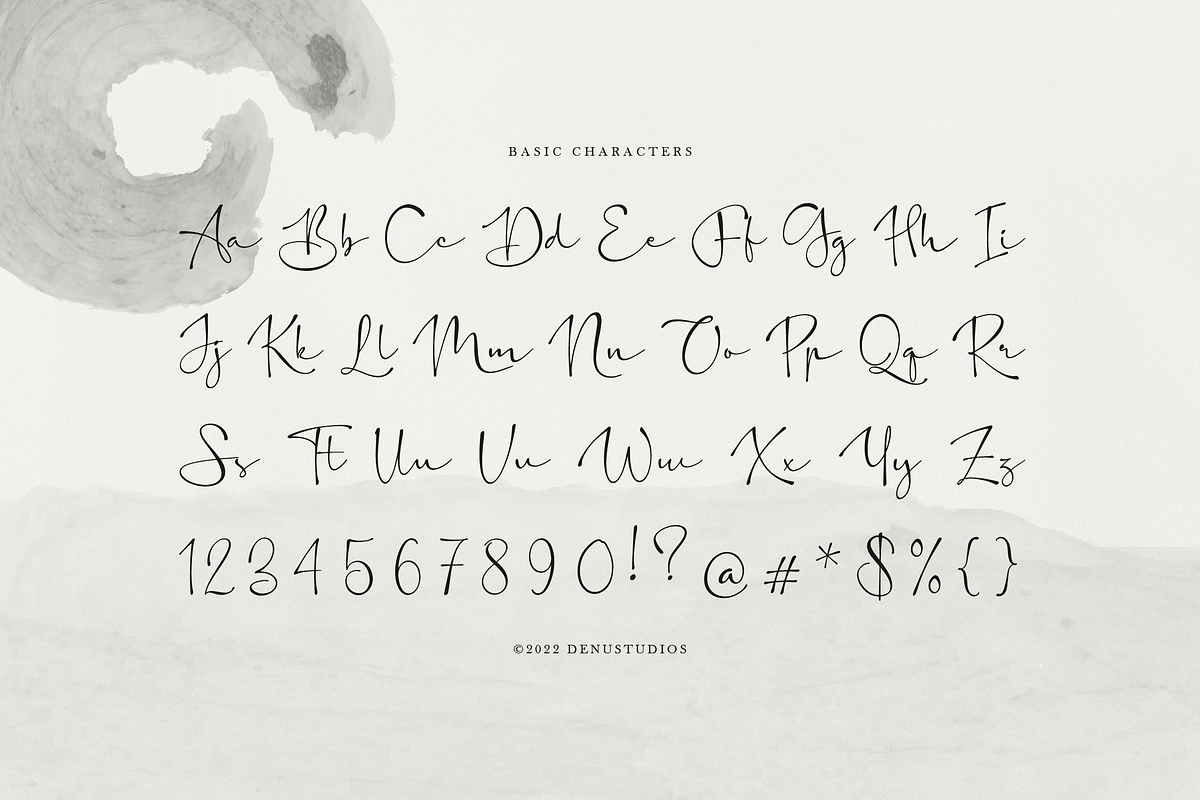 BASIC CHARACTERS
Aa Bb Cc Dd Ee Ff Gg Hh Ii
Jj Kk Ll Mm Nn Oo Pp Qq Rr
Ss Tt Uu Vv Ww Xx Yy Zz
1234567890!?@#*$%{}
©2022 DENUSTUDIOS